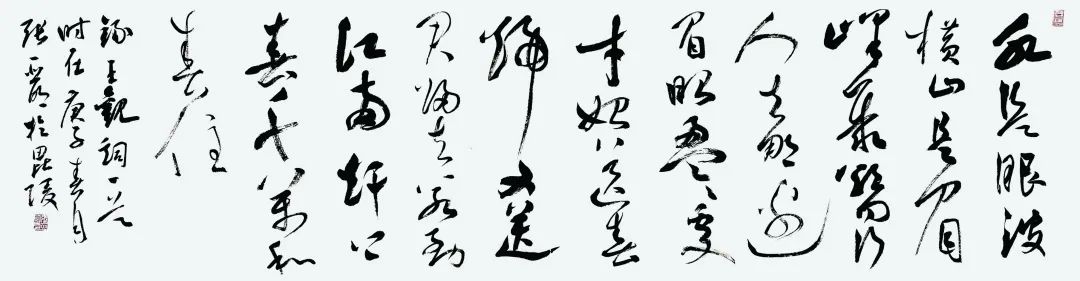 水是眼波
横山是眉
峰聚欲问行
人去那边
眉眼盈盈处
才始送春
归又送
君归去若到
江南赶上
春千万和
春住
录王观词一首
时在庚子春月
张一於毘陵